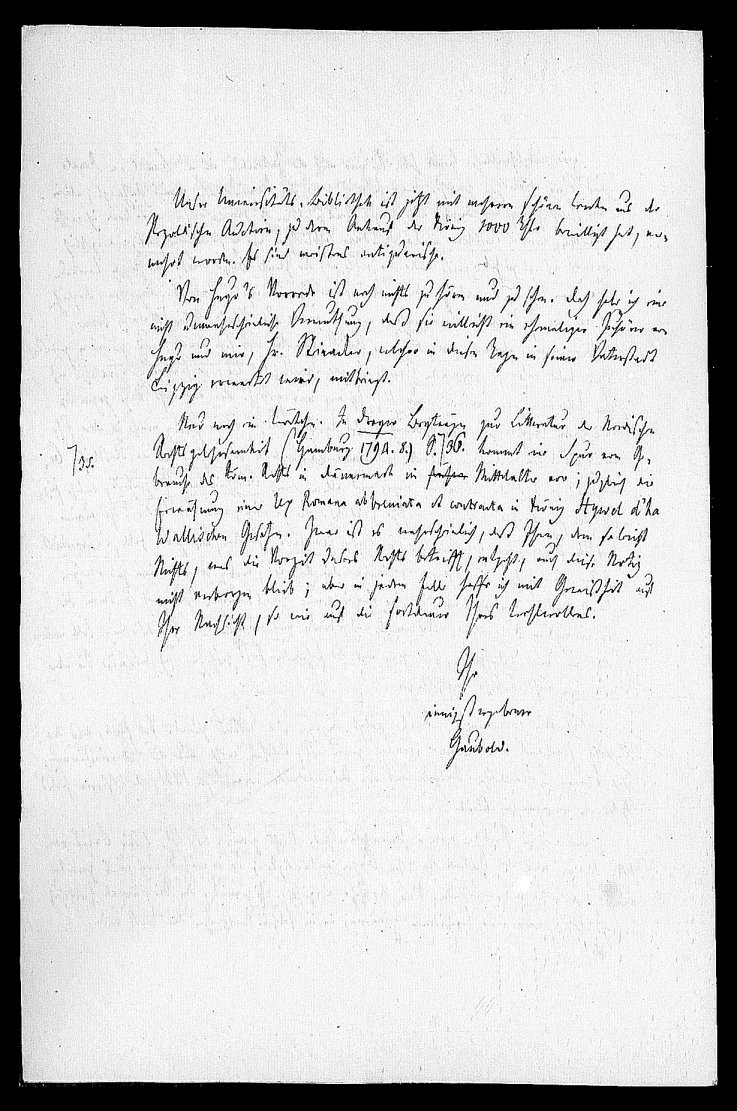 Unsere Universitäts-Bibliothek ist jetzt mit mehreren schönen Werken aus der
Pezoldischen Auction, zu deren Ankauf der König 1000 Thlr bewilligt hat, ver-
mehrt worden. Es sind meistens antiquarische.
Von Hugo's Vorrede ist noch nichts zu hören und zu sehen. Doch habe ich eine
nicht unwahrscheinliche Vermuthung, daß sie vielleicht ein ehemaliger Zuhörer von
Hugo und mir, Hr. , welcher in diesen Tagen in seiner Vaterstadt
Leipzig erwartet wird, mitbringt.
Nur noch ein Wörtchen. In Dreyer Beyträgen zur Litteratur der Nordischen
Rechtsgelehrsamkeit (Hamburg 1794. 8.) S. 736. kommt eine Spur vom Ge-
735.
brauche des Röm. Rechts in Dänemark im frühern Mittelalter vor; zugleich die
Erwähnung einer Lex Romana abbreviata et contracta in König Hywel d'ha
Wallischen Gesetzen. Zwar ist es wahrscheinlich, daß Ihnen, dem so leicht
Nichts, was die Vorzeit unsers Rechts betrifft, entgeht, auch diese Notiz
nicht verborgen blieb; aber in jedem Falle hoffe ich mit Gewißheit auf
Ihre Nachsicht, so wie auf die Fortdauer Ihres Wohlwollens.
Ihr
innigst ergebener
Haubold.